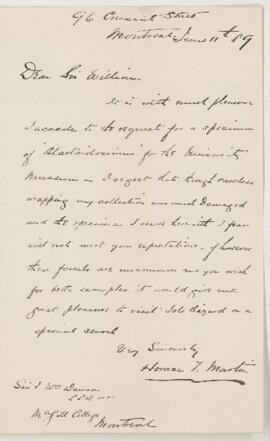 96 Crescent Street
Montreal June 11th 89
Dear Sir William
It is with much pleasure
I accede to the request for a specimen
of "Blastoidocrinus" for the University
Museum. I regret that through careless
wrapping my collection was much damaged
and the specimen I send herewith I fear
will not meet your expectations. If however
these fossils are uncommon and you wish
for better examples it would give me
great pleasure to visit Isle Bizard on a
special search
Very Sincerely
Horace T. Martin
Sir J Wm Dawson
LLD
McGill College
Montreal